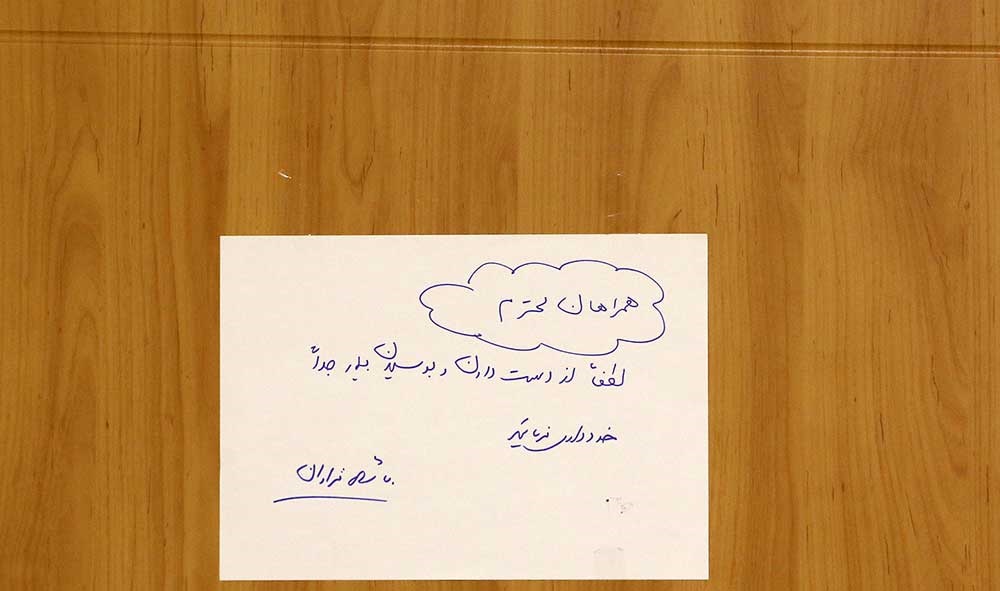 همراهان محترم
لطفاً از دست دادن و بوسیدن بیمار جداً
خودداری فرمائید
با تشکر فراوان